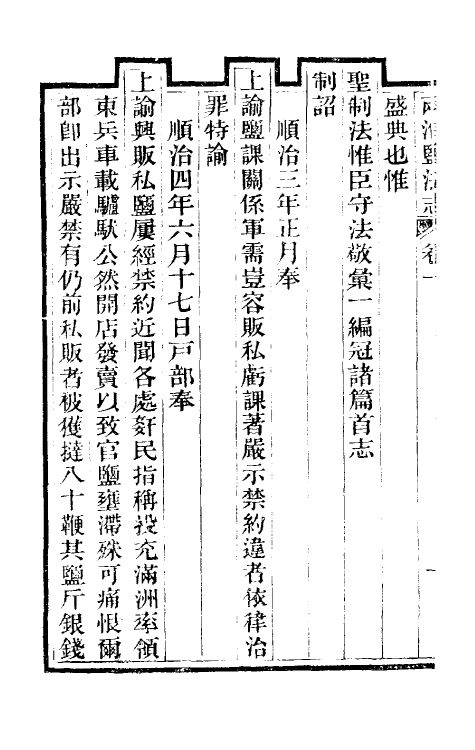 兩淮鹽法志 卷一
盛典也惟
聖制法惟臣守法敬彙一編冠諸篇首志
制詔
順治三年正月奉
上諭鹽課關係軍需豈容販私虧課著嚴示禁約違者依律治
罪特諭
順治四年六月十七日戸部奉
上諭興販私鹽屢經禁約近聞各處奸民指稱投充滿洲率領
東兵車載驢馱公然開店發賣以致官鹽壅滯殊可痛恨爾
部卽出示嚴禁有仍前私販者被獲撻八十鞭其鹽斤銀錢